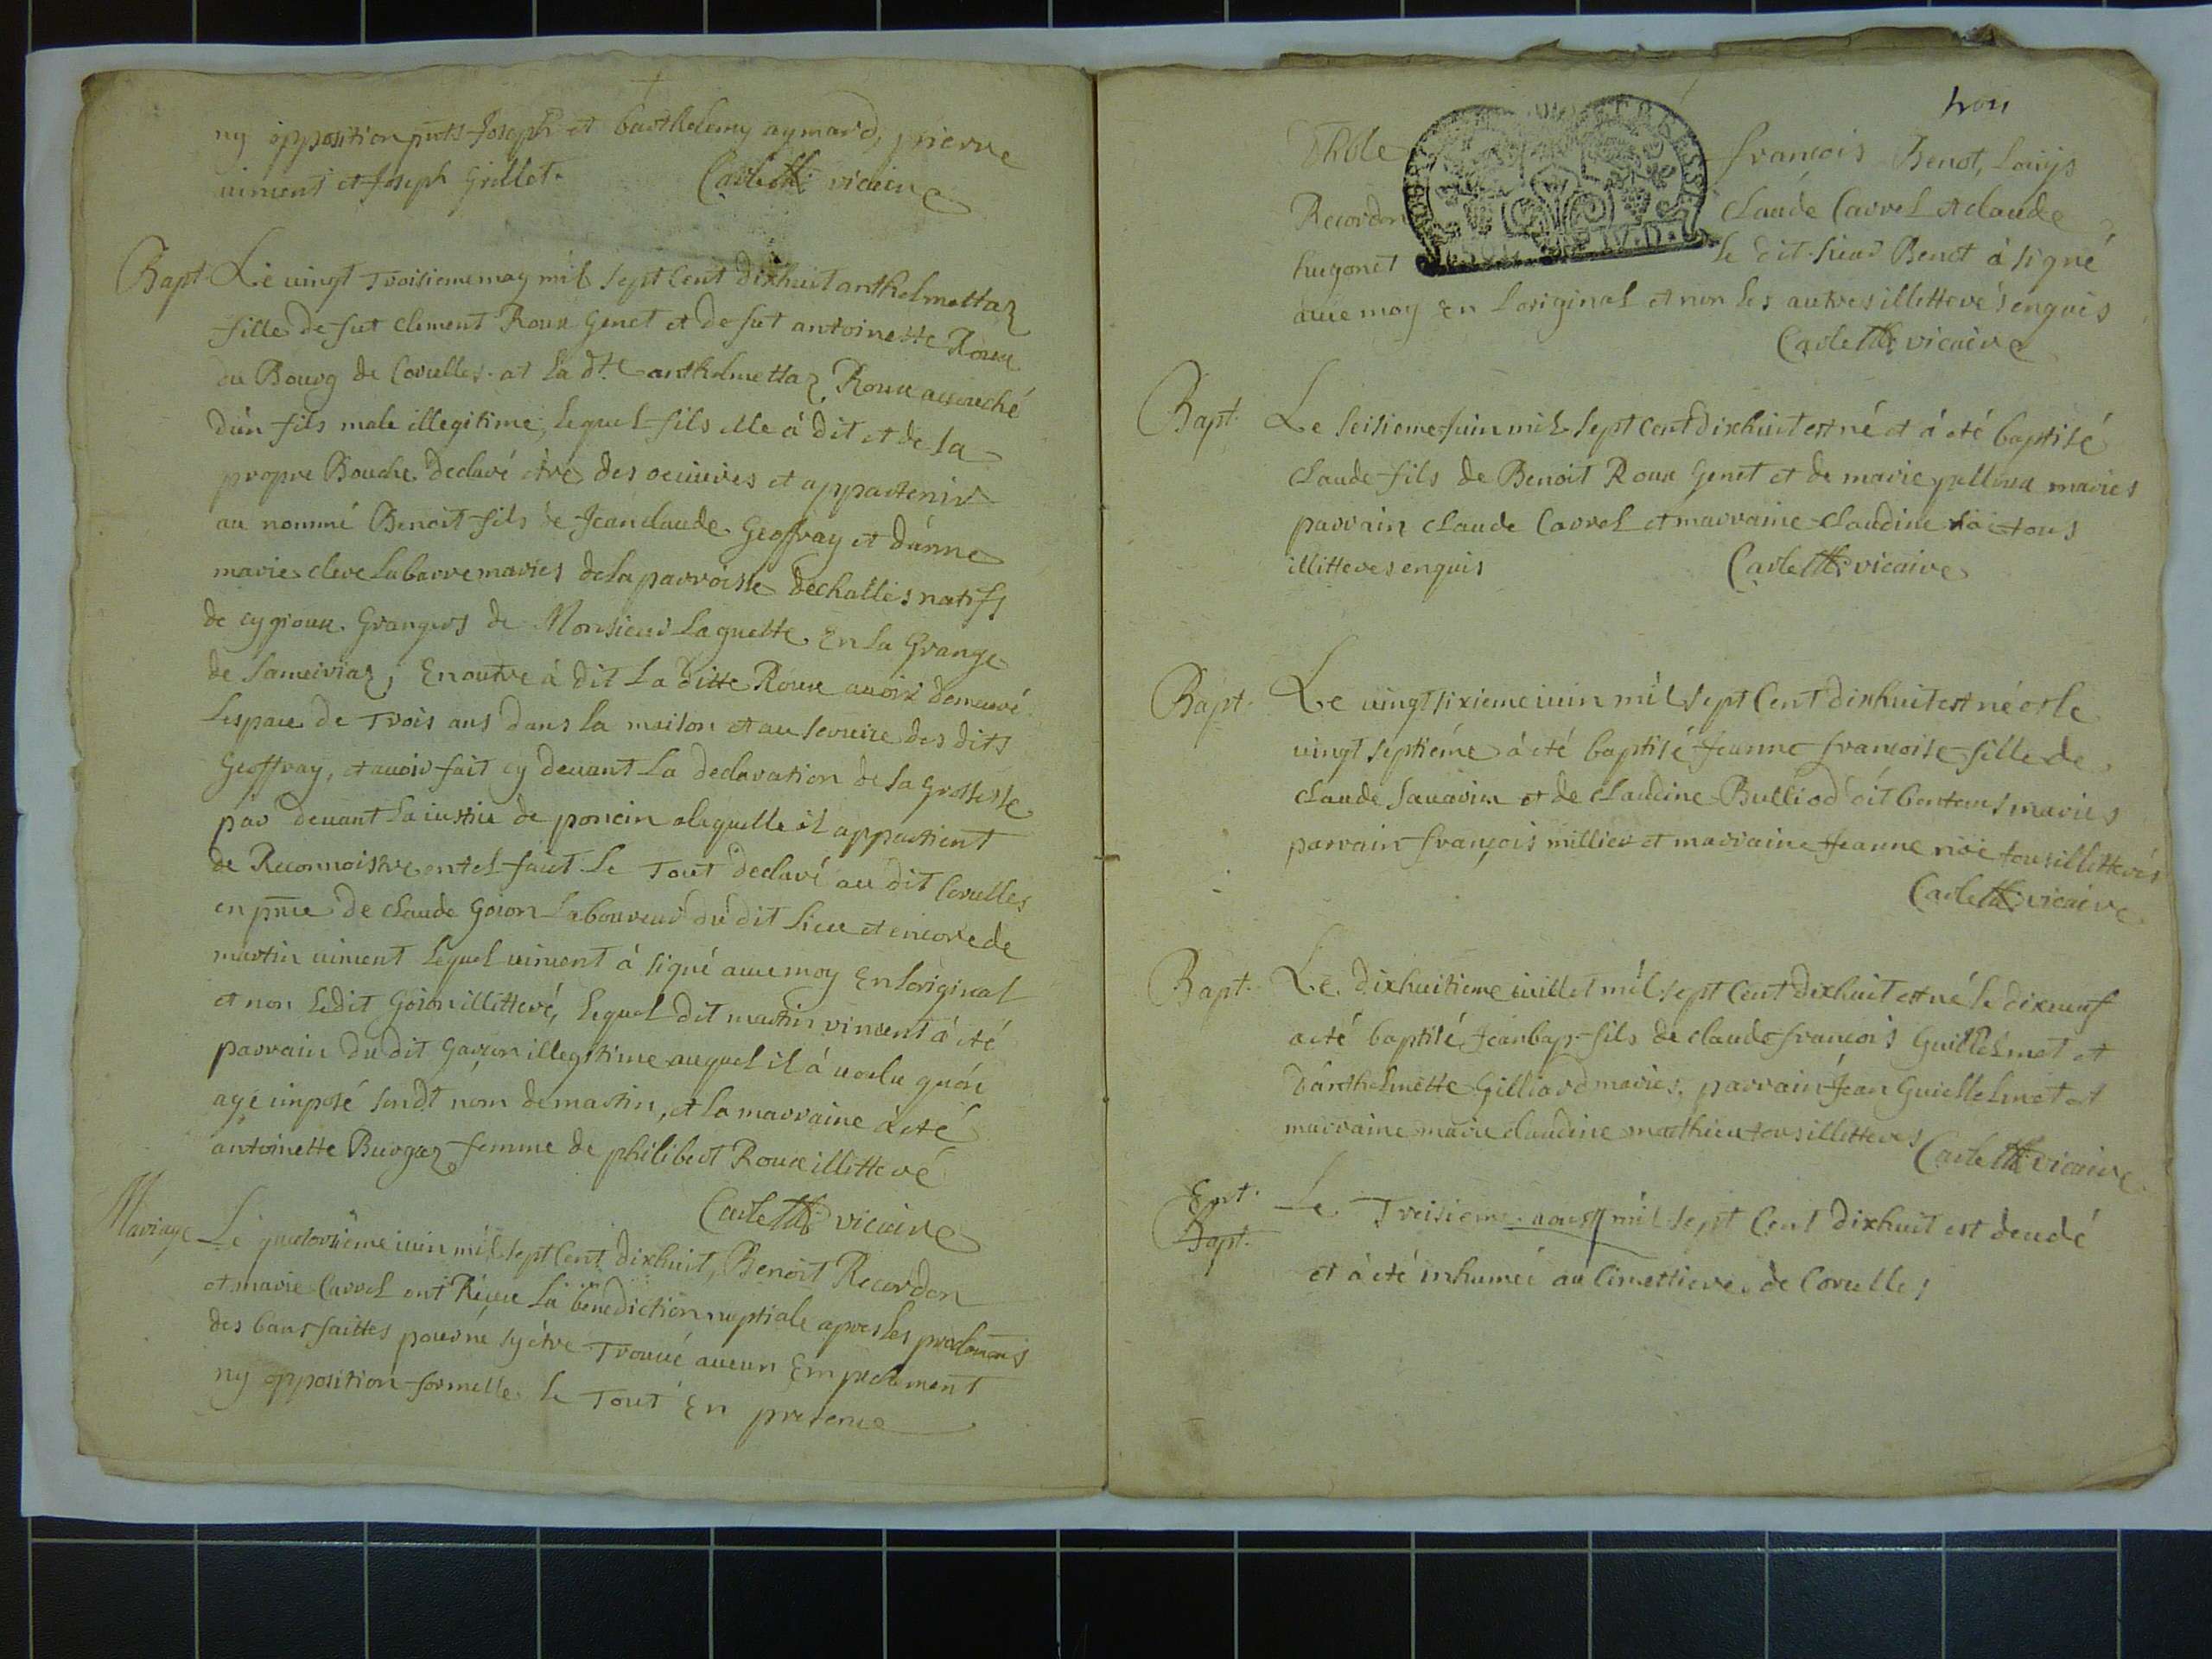 ny opposition pnts Joseph et barthelemy aymard, pierre
uincent et Joseph Grillet. Carlette vicaire
Bapt. Le uingt Troisieme may mil sept cent dixhuit anthelmettaz
fille de fut clement Roux Genet et de fut antoinette Roux
du Bourg de Coruelles. at la dte anthelmettaz Roux accouché
d'un fils male illegitime, lequel fils elle à dit et de sa
propre Bouche declaré étre des oeuures et appartenir
au nommé Benoit fils de Jean claude Geoffray et d'anne
marie clere Labarre maries de la parroisse de challes natifs
de cypioux. Grangers de Monsieur Laguette En la Grange
de , En outre à dit La ditte Roux auoir demeuré
L'espace de Trois ans dans la maison et au seruice des dits
Geoffray, et auoir fait cy deuant La declaration de sa Grossesse
par deuant La iustice de poncin alaquelle il appartient
de Reconnoistre en tel fait. Le Tout declaré au dit Coruelles
en pnce de claude Goion Laboureur du dit lieu et encore de
martin uincent Lequel uincent à signé auec moy En l'original
et non Ledit Goion illitteré, lequel dit martin vincent à été
parrain du dit Garçon illegitime auquel il à uoulu
 imposé sondt nom de martin, et la marraine à eté
antoinette Burgaz femme de philibert Roux illitteré
Carlette vicaire
Mariage Le quatorsieme iuin mil sept Cent dixhuit, Benoit Recordon
et marie Carrel ont Réçeu La bénediction nuptiale apres les proclamaons
des bans faittes pour ne s'y étre Trouué aucun Empechement
ny opposition formelle le Tout En presence
trois
 françois Benot, Louys
Recordon claude Carrel et claude
hugonet le dit sieur Benot à signé
auec moy En L'original et non les autres illitterés enquis
Carlette vicaire
Bapt. Le seisieme Juin mil sept cent dixhuit est né et à eté baptisé
claude fils de Benoit Roux Genet et de marie maries
parrain claude Carrel et marraine claudine tous
illitteres enquis Carlette vicaire
Bapt. Le uingt sixieme iuin mil sept Cent dixhuit est né et le
uingt septiéme à eté baptisé Jeanne françoise fille de
claude Sauarin et de claudine Bulliod dit maries
parrain françois millier et marraine Jeanne tous illitterés
Carlette vicaire
Bapt. Le dixhuitieme iuillet mil sept Cent dixhuit est né le dixneuf
a eté baptisé Jean bap. fils de claude françois Guillelmet et
d'anthelmette Gilliard maries. parrain Jean Guillelmet et
marraine marie claudine mathieu tous illitteres Carlette vicaire
Ent.
Bapt. Le Troisieme aoust mil sept Cent dixhuit est decedé
et à eté inhumeé au Cimettiere de Coruelles